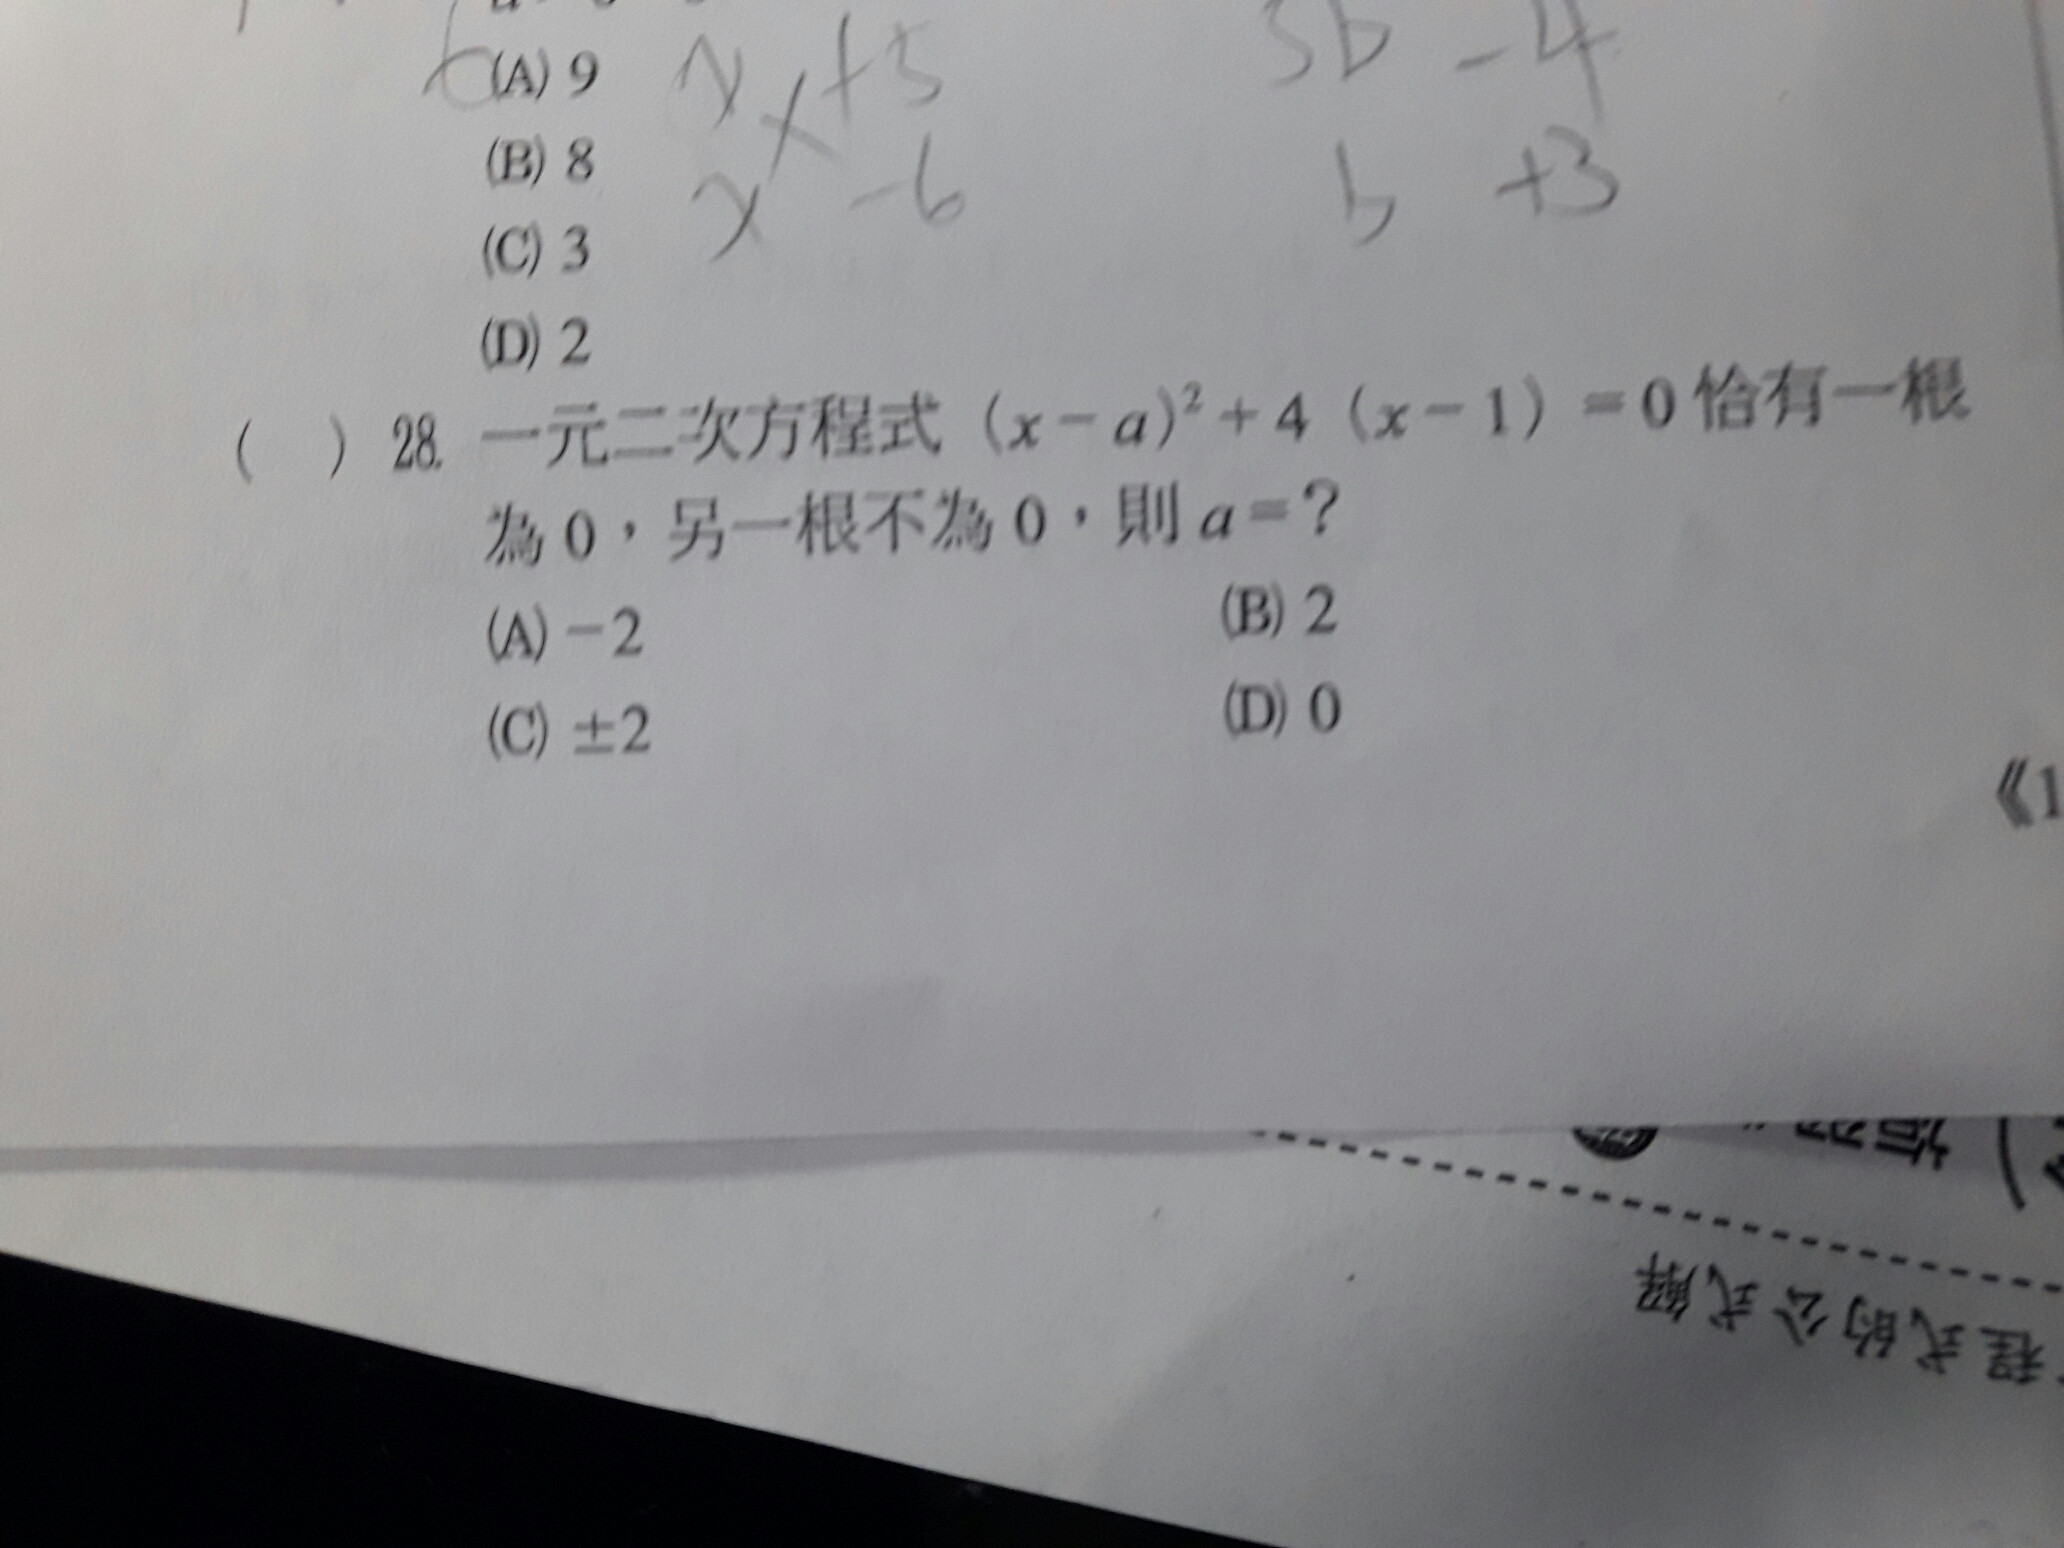 (A) 9
x +5
3b -4
(B) 8
x -6
b +3
(C) 3
(D) 2
( ) 28. 一元二次方程式 (x-a)²+4 (x-1) =0 恰有一根
為 0,另一根不為 0,則 a=?
(A) -2 (B) 2
(C) ±2 (D) 0
《1
程式的公式解